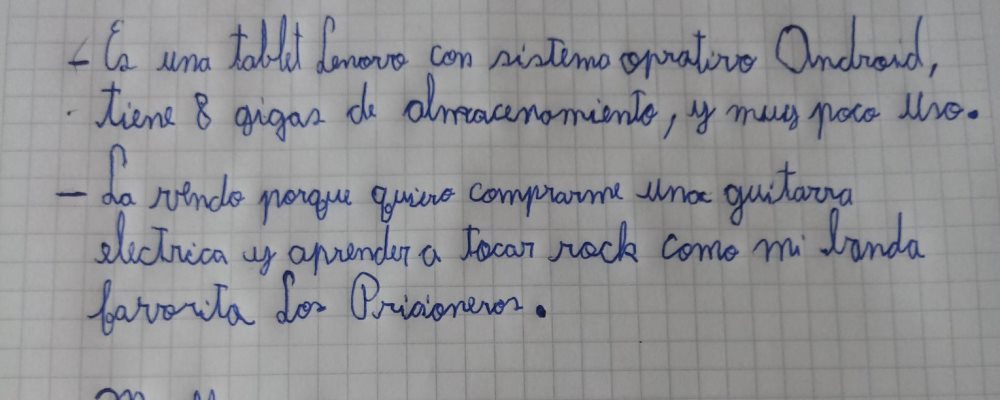 - Es una tablet Lenovo con sistema oprativo Android,
tiene 8 gigas de almacenamiento, y muy poco uso.
- La vendo porque quiero comprarme una guitarra
electrica y aprender a tocar rock como mi banda
favorita Los Pricioneros.